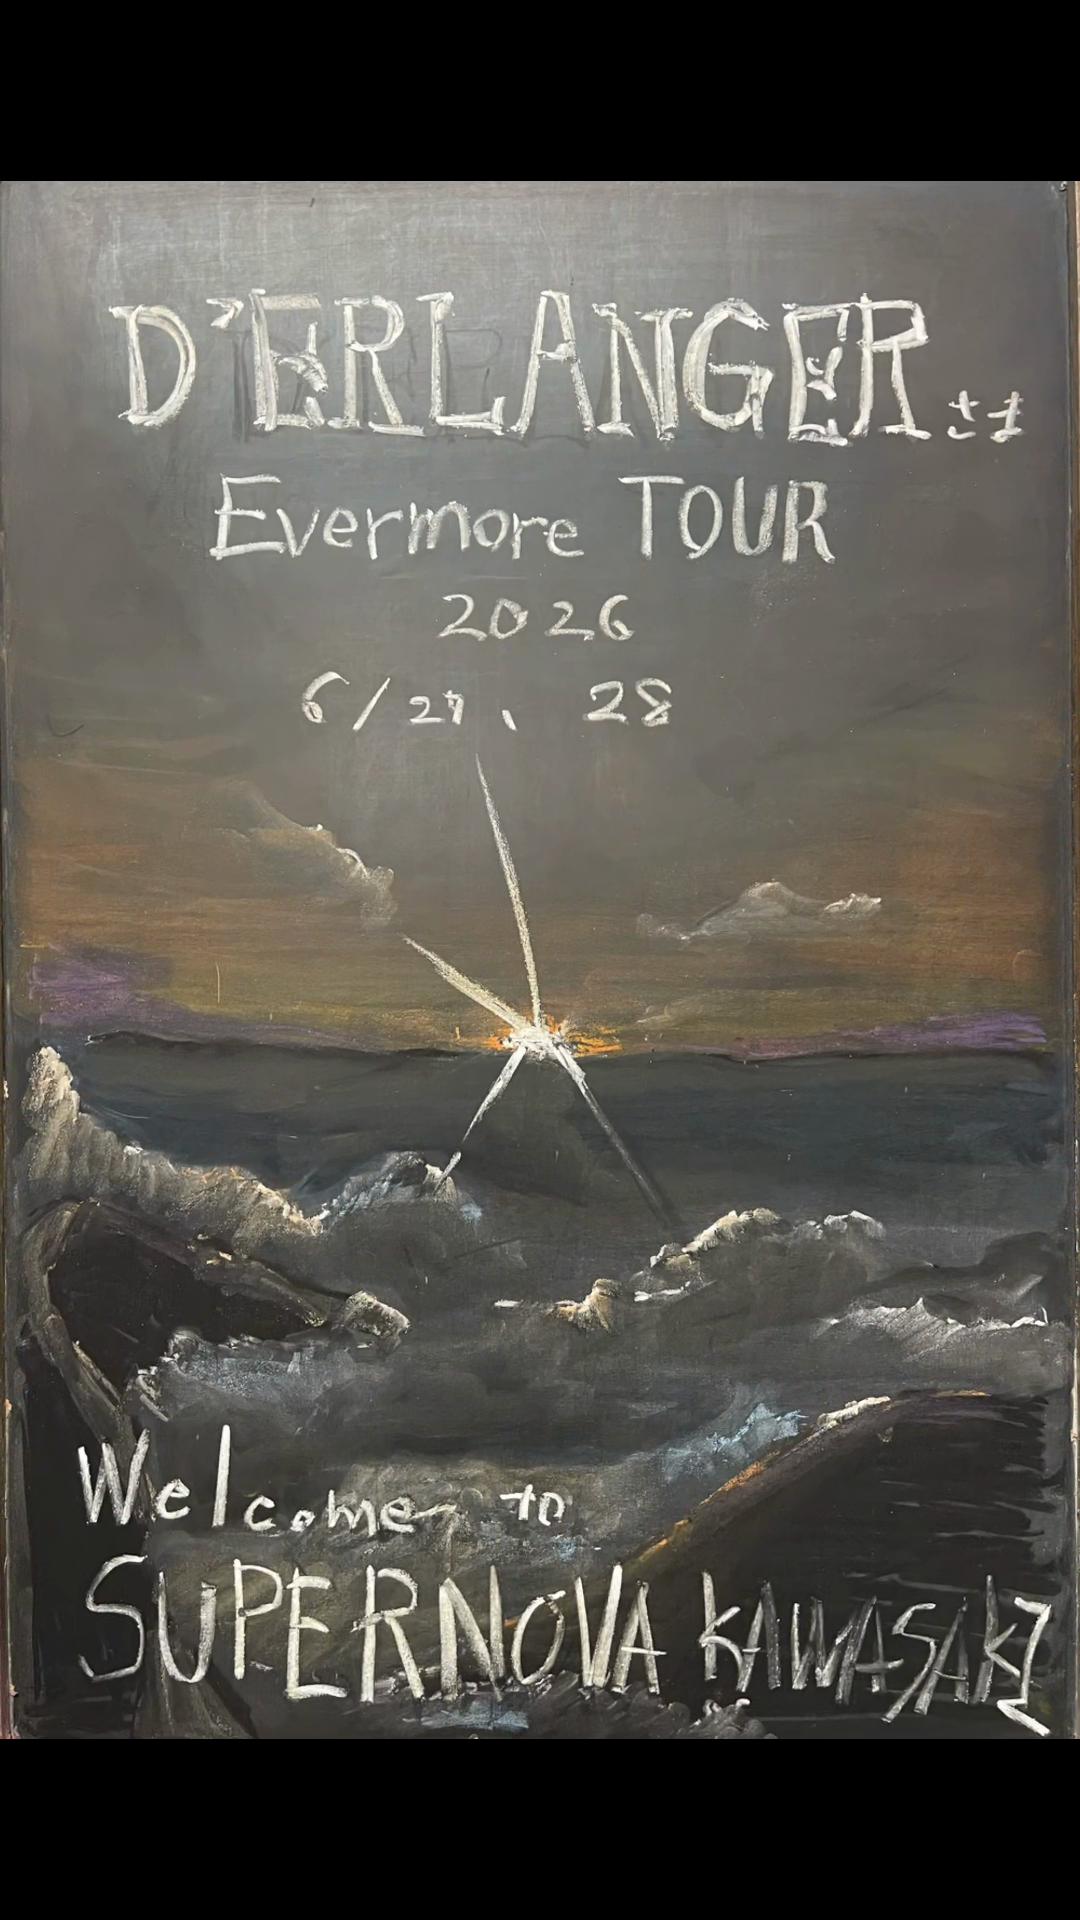 D'ERLANGER さま
Evermore TOUR
2026
6/27、28
Welcome to
SUPERNOVA KAWASAKI